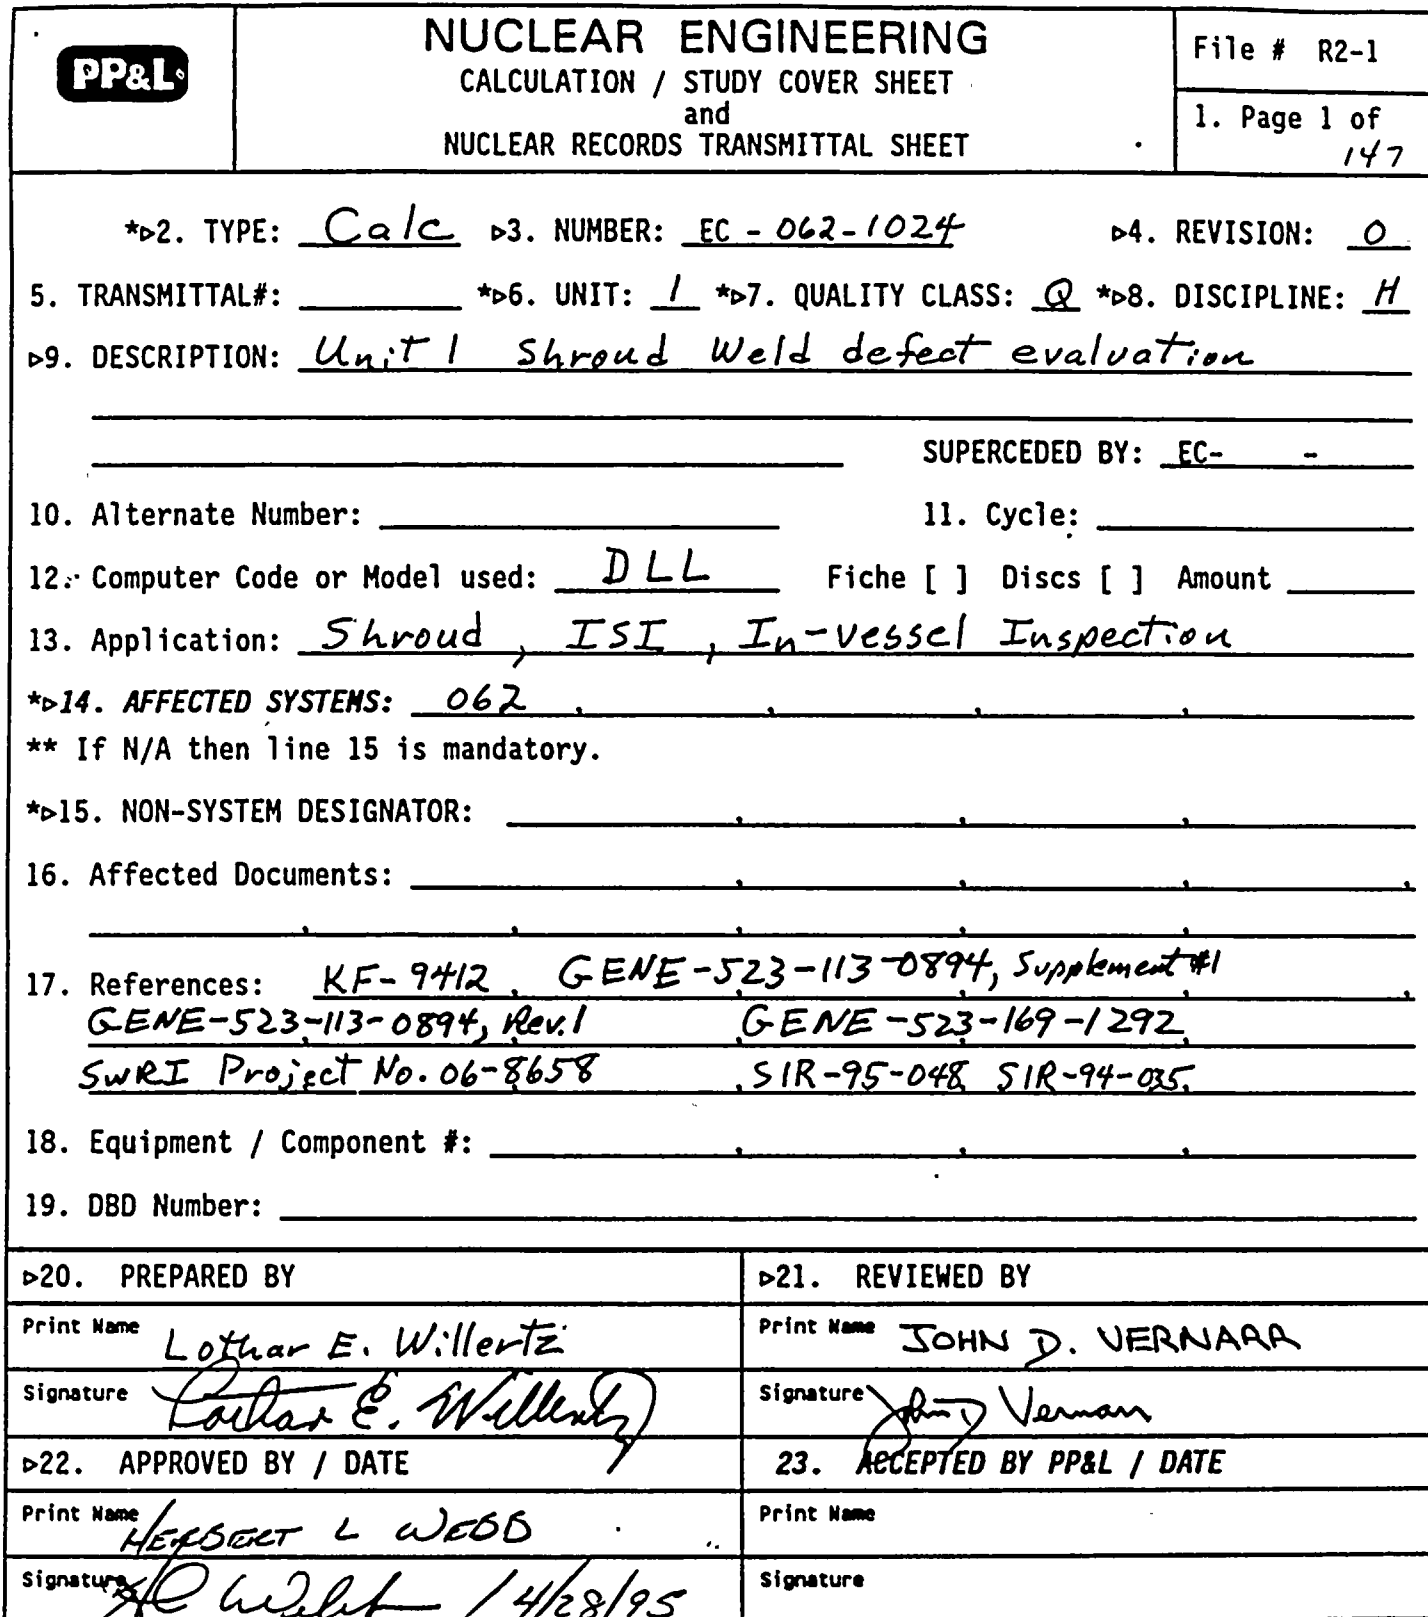 PP&L
NUCLEAR ENGINEERING
CALCULATION / STUDY COVER SHEET
and
NUCLEAR RECORDS TRANSMITTAL SHEET
File # R2-1
1. Page 1 of
147
*▷2. TYPE: Calc ▷3. NUMBER: EC - 062-1024 ▷4. REVISION: 0
5. TRANSMITTAL#: *▷6. UNIT: 1 *▷7. QUALITY CLASS: Q *▷8. DISCIPLINE: H
▷9. DESCRIPTION: Unit 1 Shroud Weld defect evaluation
SUPERCEDED BY: EC- -
10. Alternate Number: 11. Cycle:
12. Computer Code or Model used: DLL Fiche [ ] Discs [ ] Amount
13. Application: Shroud, ISI, In-vessel Inspection
*▷14. AFFECTED SYSTEMS: 062 , , , ,
** If N/A then line 15 is mandatory.
*▷15. NON-SYSTEM DESIGNATOR: , , ,
16. Affected Documents: , , , ,
, , , ,
17. References: KF-9412, GENE-523-113-0894, Supplement #1 ,
GENE-523-113-0894, Rev.1 GENE-523-169-1292,
SwRI Project No. 06-8658 , SIR-95-048, SIR-94-035,
18. Equipment / Component #: , , ,
19. DBD Number:
▷20. PREPARED BY
Print Name Lothar E. Willertz
Signature Lothar E. Willertz
▷21. REVIEWED BY
Print Name JOHN D. VERNARR
Signature John D Vernarr
▷22. APPROVED BY / DATE
Print Name HERBERT L WEBB
Signature HL Webb / 4/28/95
23. ACCEPTED BY PP&L / DATE
Print Name
Signature